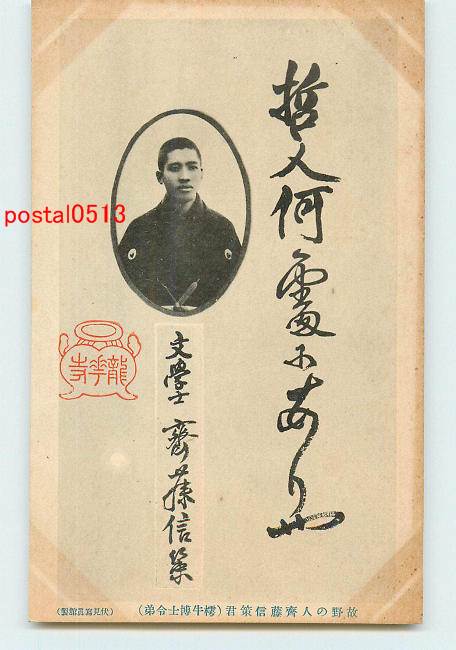 哲人何處にありや
文學士 齋藤信策
龍華寺
postal0513
故野の人齊藤信策君(樗牛博士令弟)
(伏見寫眞館製)